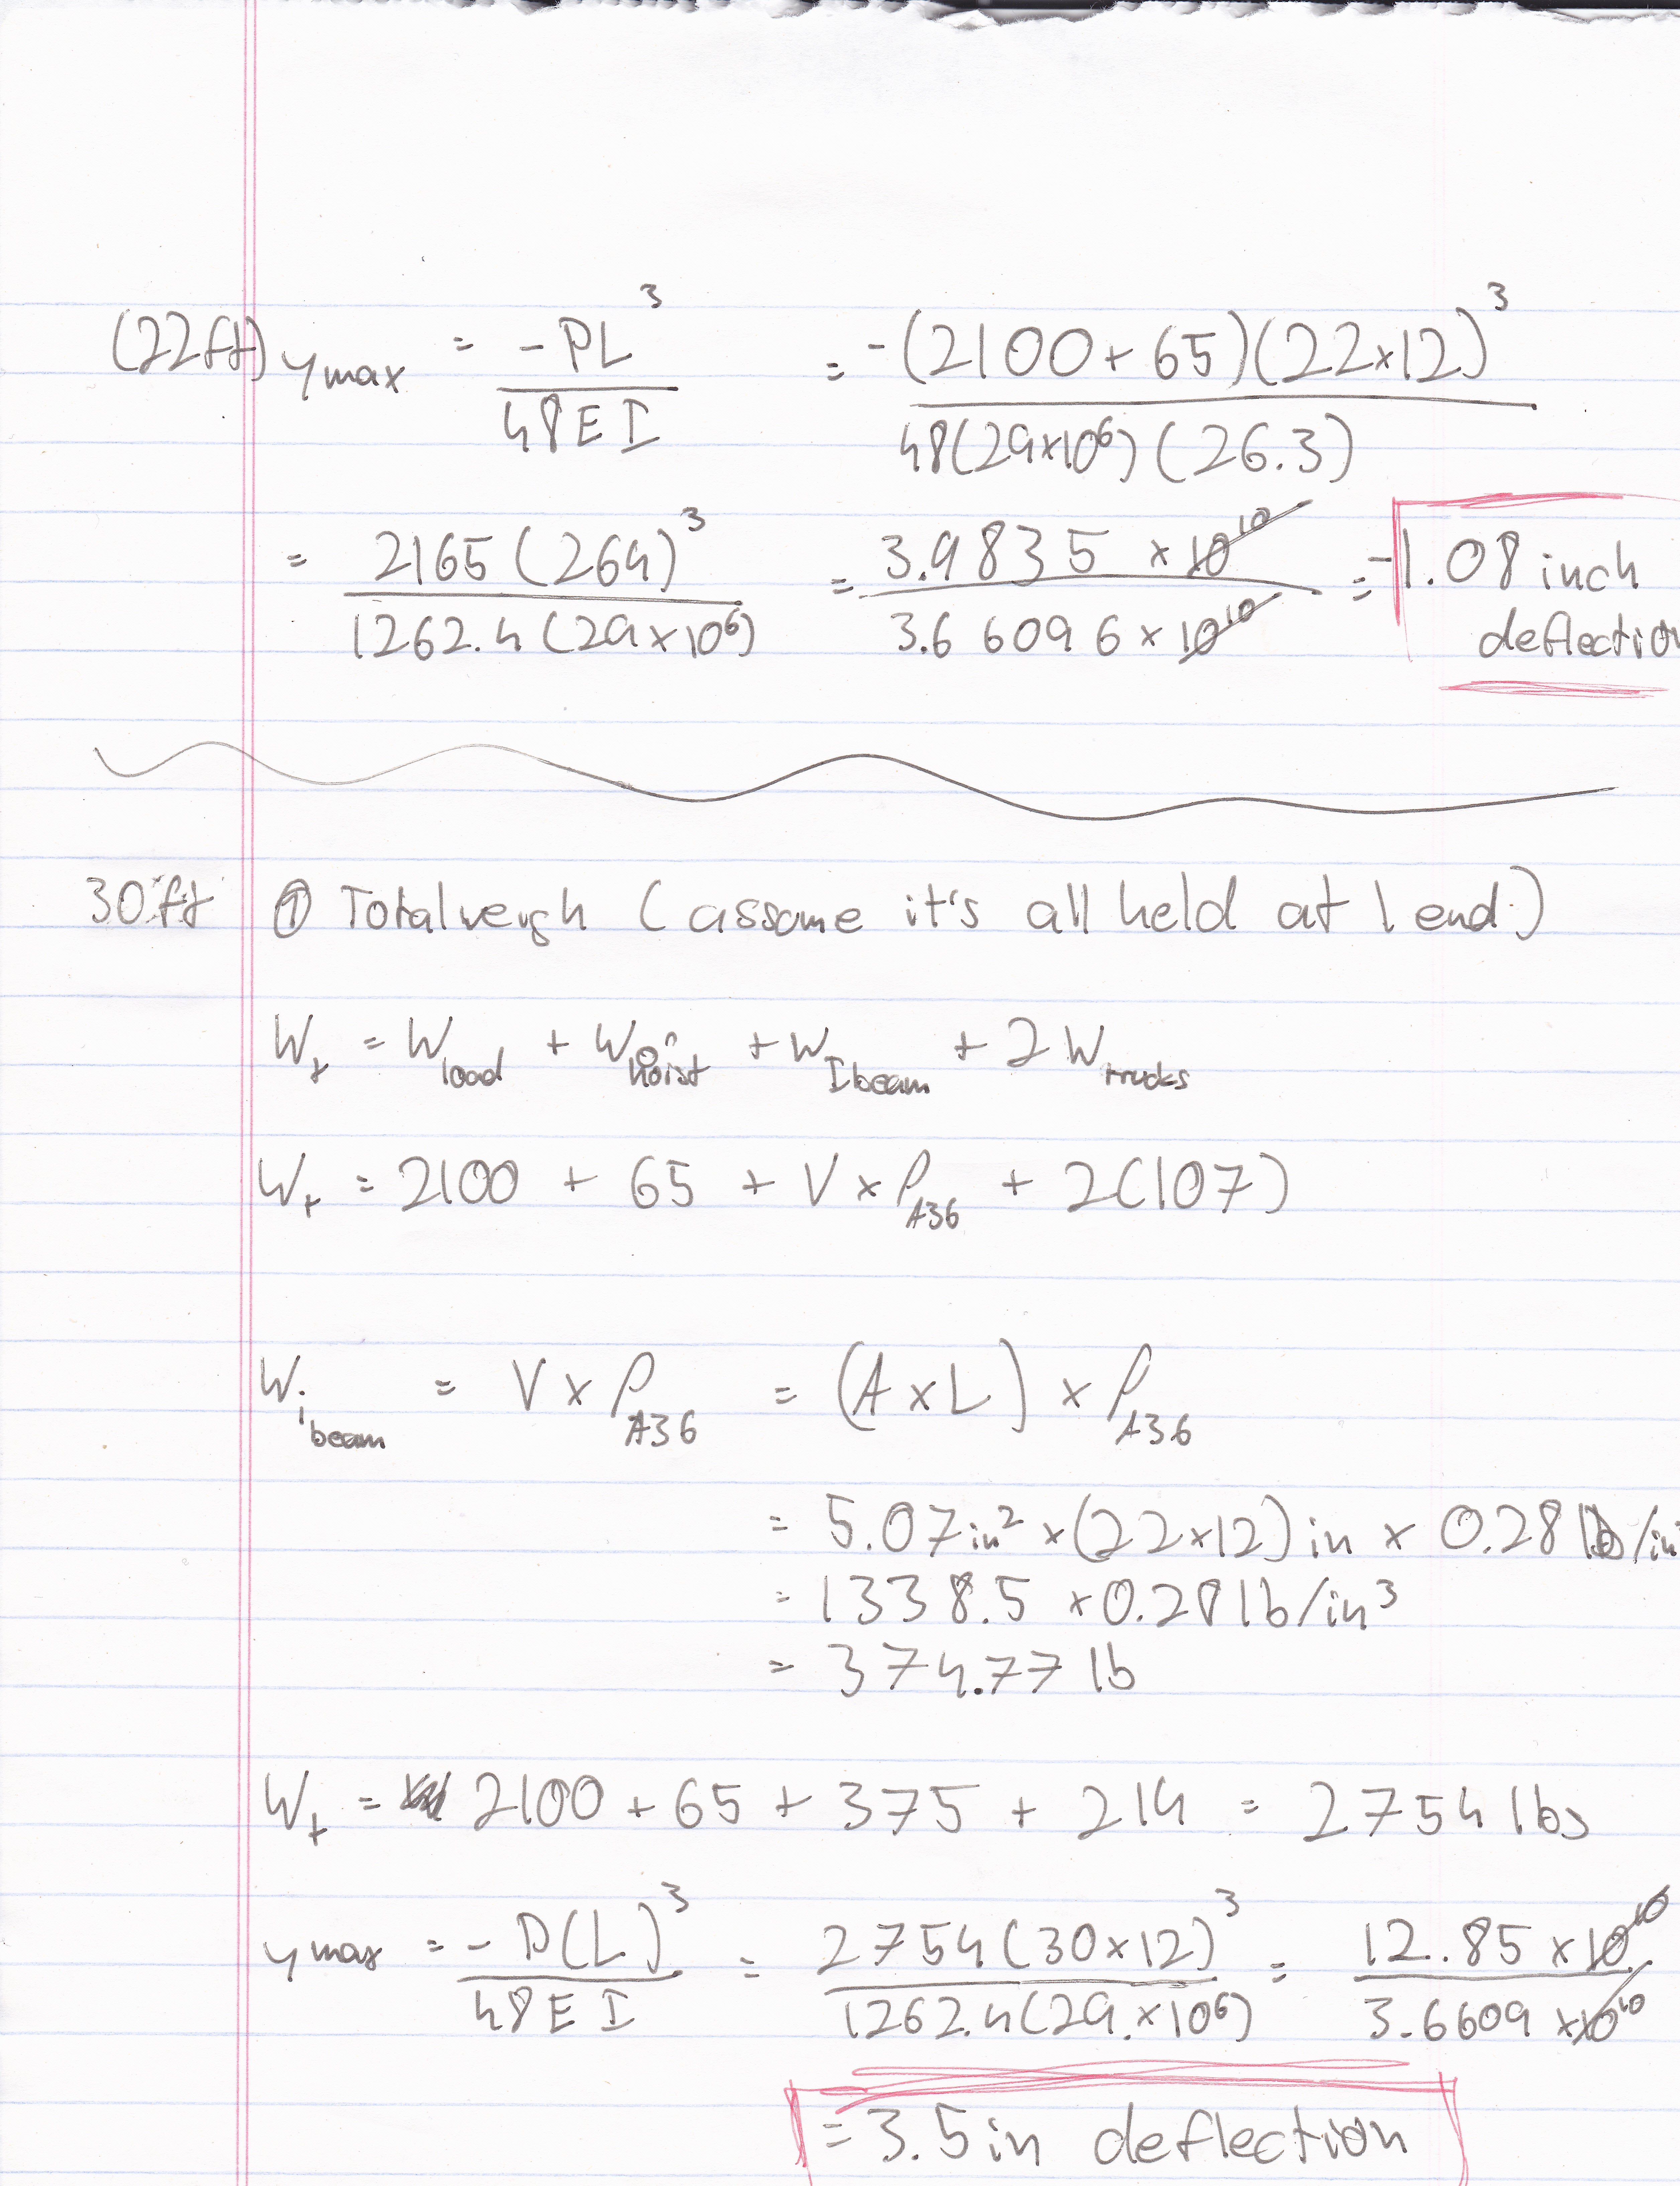 (22ft) ymax = -PL³ / 48EI = -(2100+65)(22×12)³ / 48(29×10⁶)(26.3)
= 2165(264)³ / 1262.4(29×10⁶) = 3.9835 ×10¹⁰ / 3.66096×10¹⁰ = -1.08 inch
deflection
30ft ① Totalweigh (assome it's all held at 1 end)
Wt = Wload + Whoist + WIbeam + 2Wtrucks
Wt = 2100 + 65 + V×ρA36 + 2(107)
Wibeam = V×ρA36 = (A×L)×ρA36
= 5.07in²×(22×12)in × 0.28 lb/in
= 1338.5 ×0.28lb/in³
= 374.77 lb
Wt = 2100 + 65 + 375 + 214 = 2754 lbs
ymax = -P(L)³ / 48EI = 2754(30×12)³ / 1262.4(29.×10⁶) = 12.85×10¹⁰ / 3.6609×10¹⁰
= 3.5in deflection